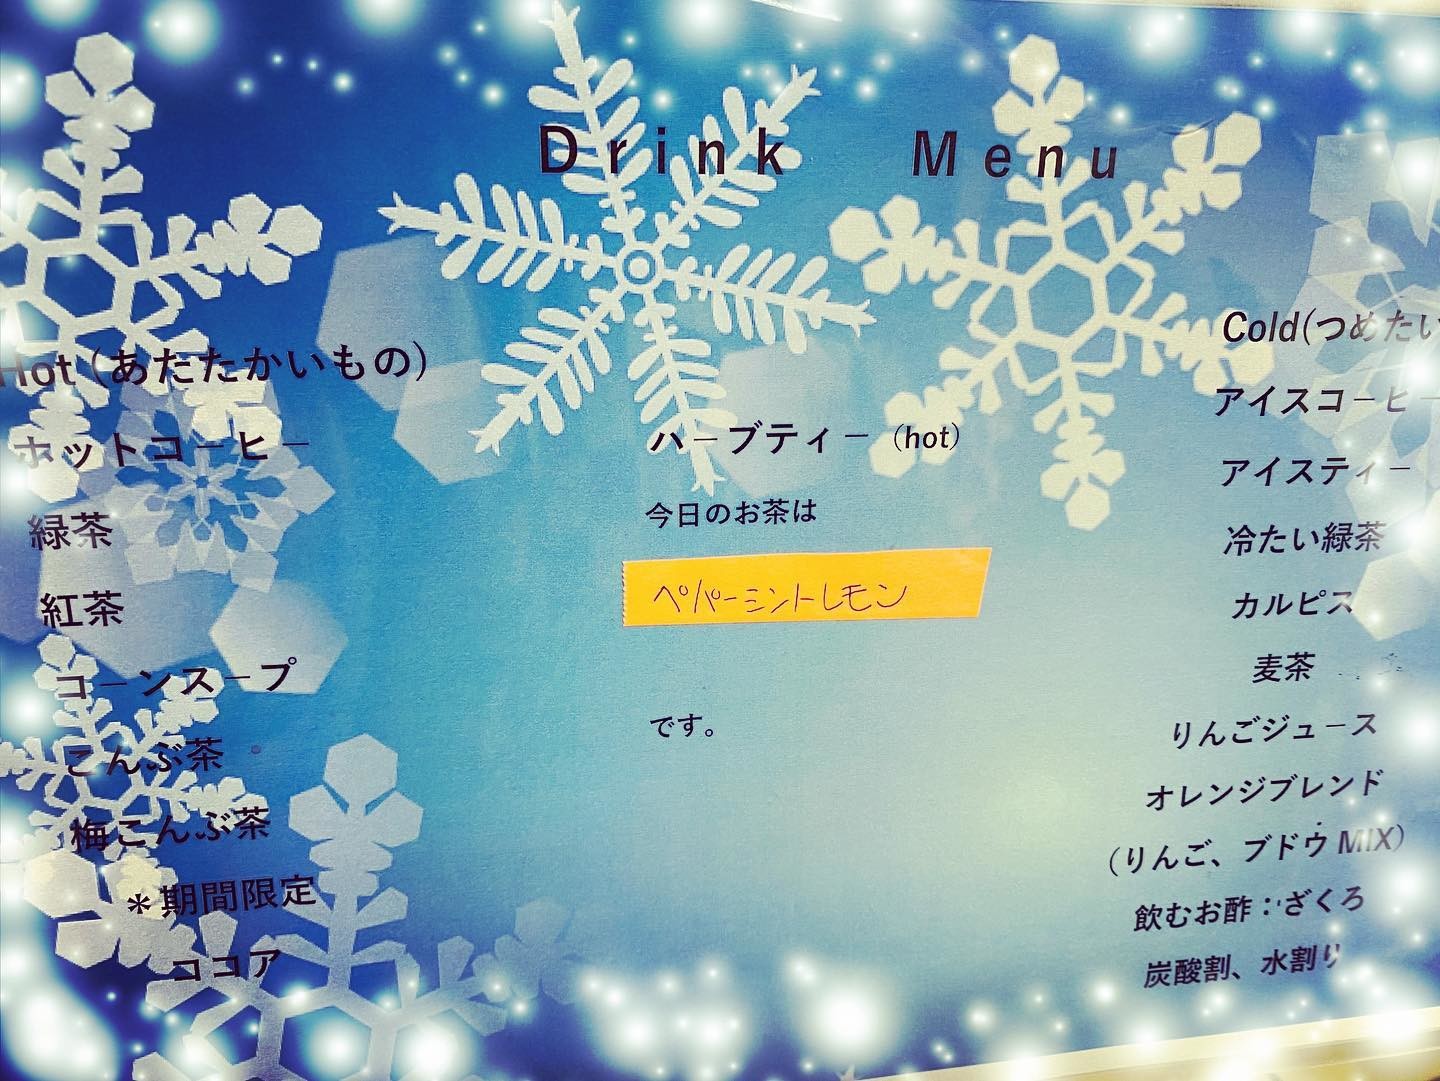 Drink Menu
Hot (あたたかいもの)
ホットコーヒー
緑茶
紅茶
コーンスープ
こんぶ茶
梅こんぶ茶
＊期間限定
ココア
ハーブティー (hot)
今日のお茶は
ペパーミントレモン
です。
Cold(つめたい
アイスコーヒー
アイスティー
冷たい緑茶
カルピス
麦茶
りんごジュース
オレンジブレンド
(りんご、ブドウ MIX)
飲むお酢：ざくろ
炭酸割、水割り